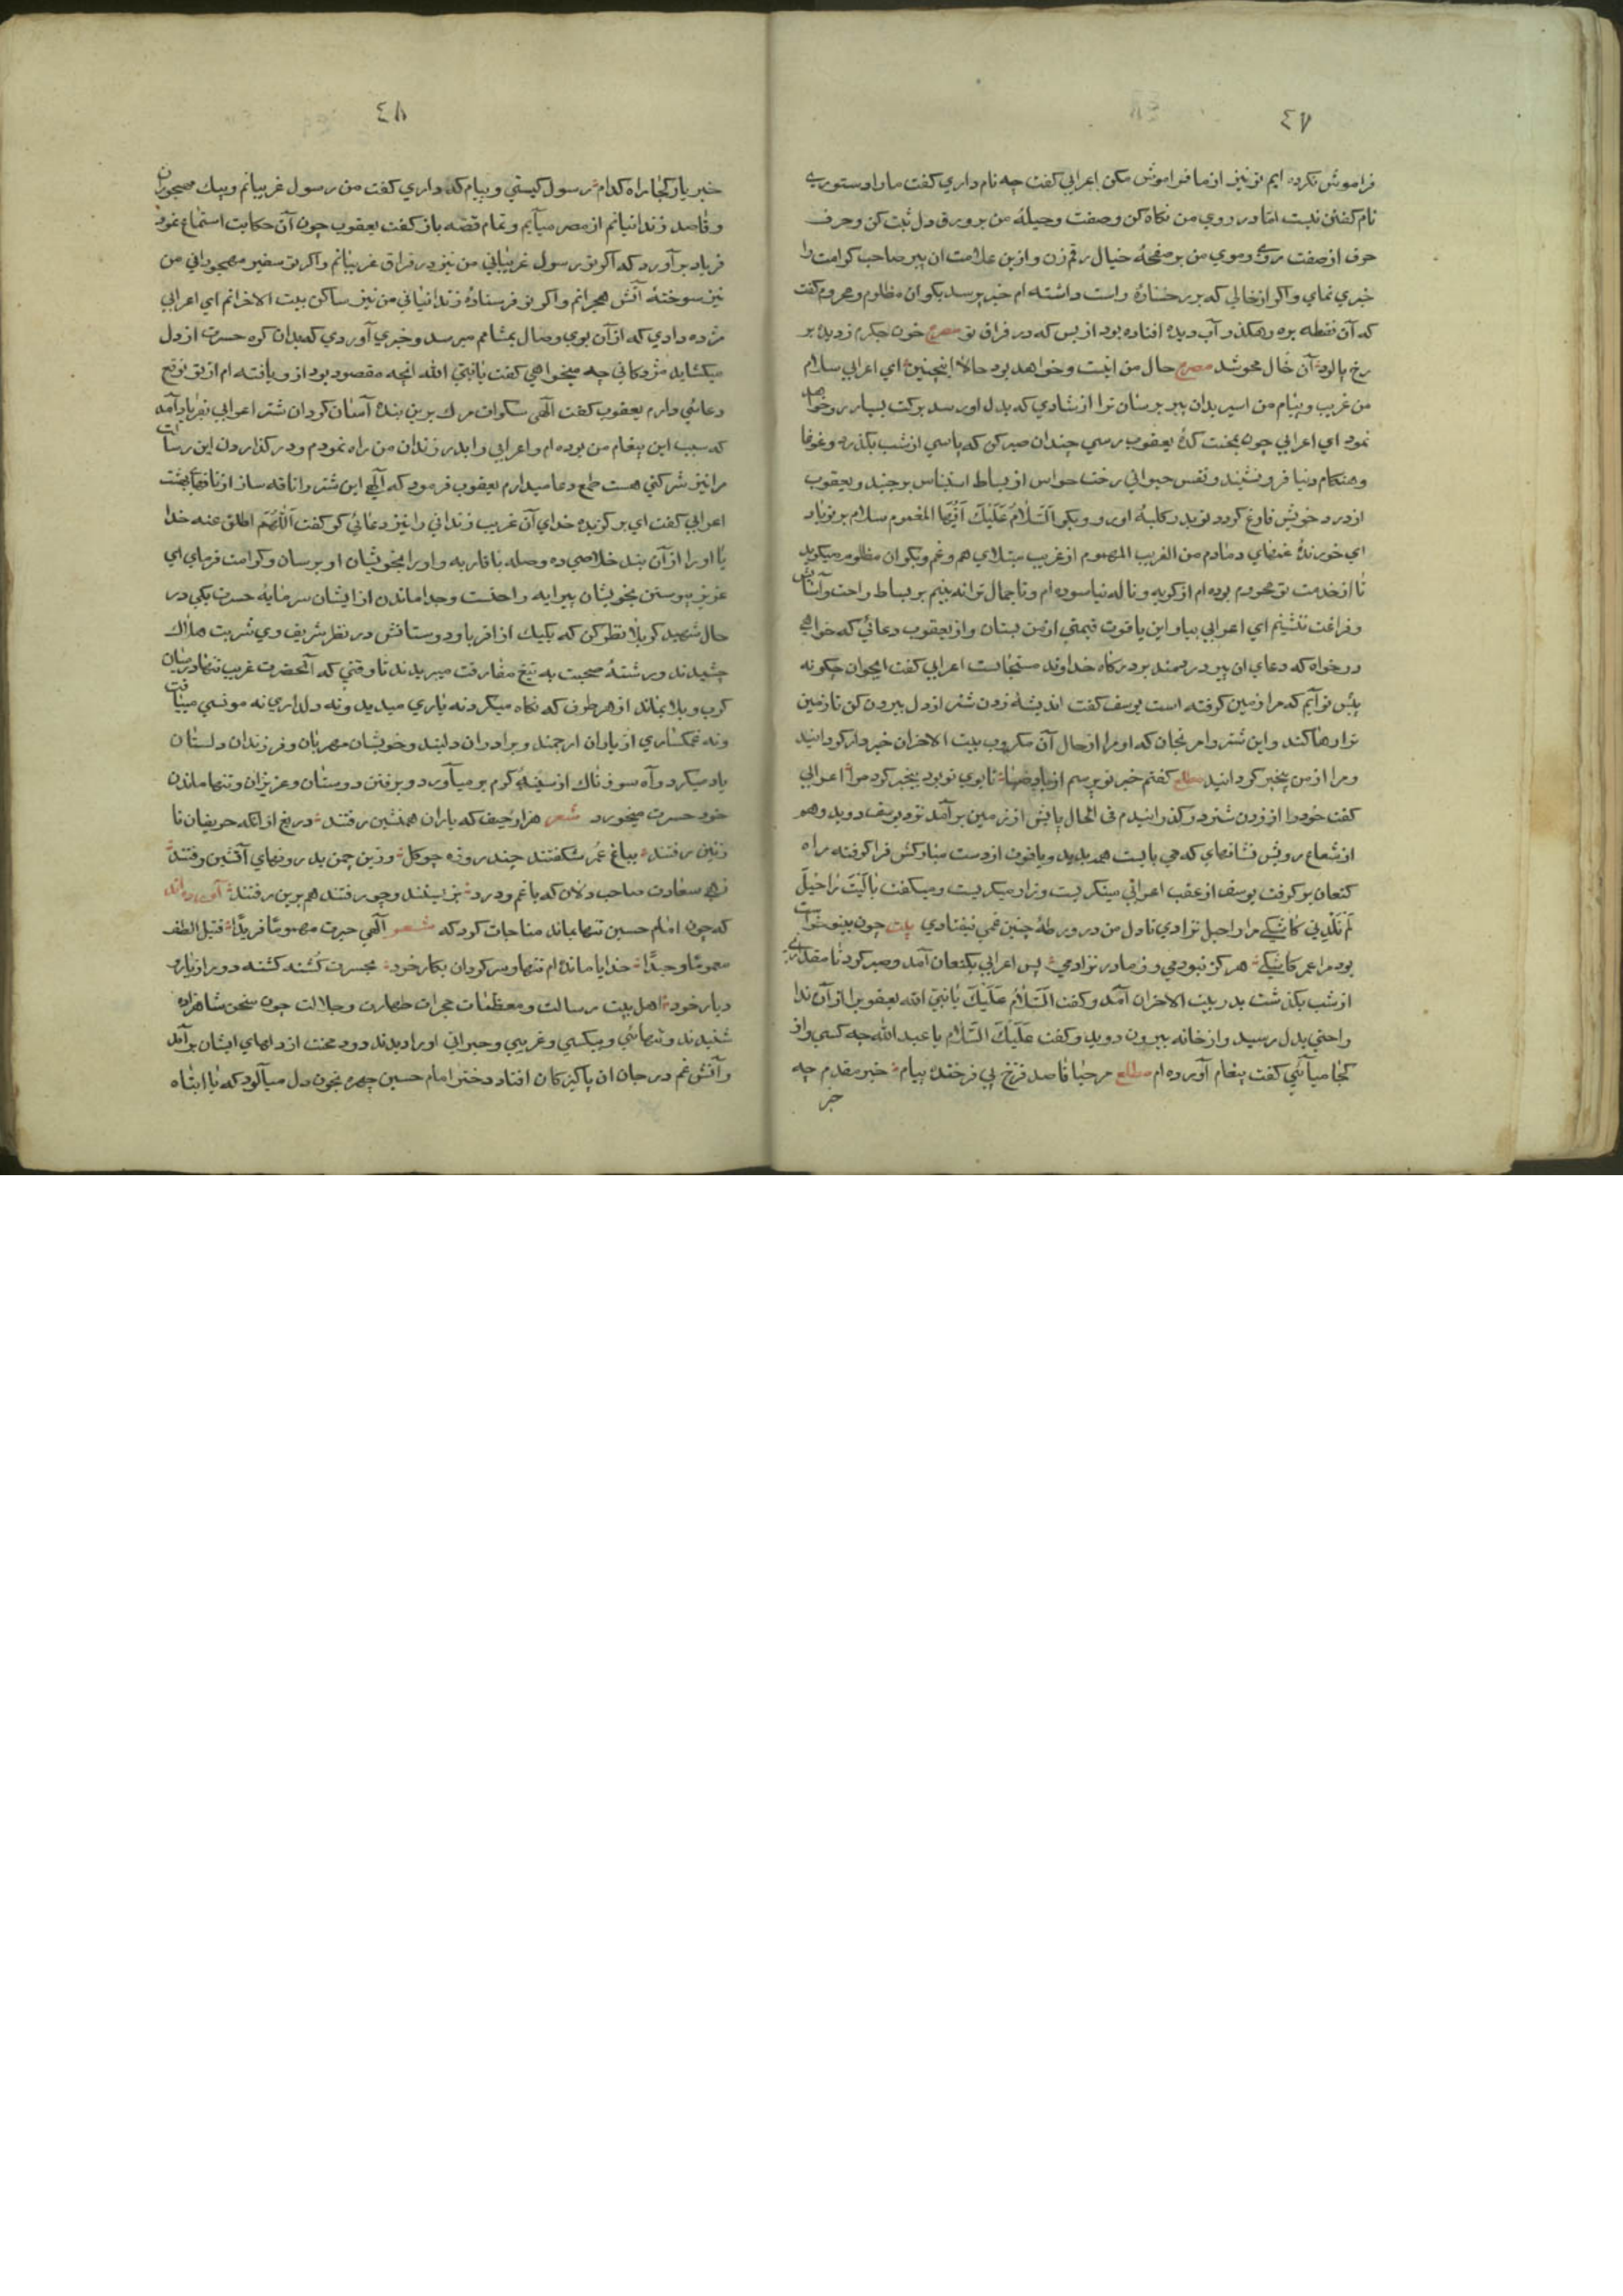 ٤٧
فراموش نکرده ایم تو نیز از ما فراموش مکن اعرابی گفت چه نام داری گفت ما را دستوری
نام گفتن نیست اما در روی من نگاه کن و صفت و حیلهٔ من بر ورق دل ثبت کن و حرف
حرف از صفت روی و موی من بر صفحهٔ خیال رقم زن و ازین علامت آن پیر صاحب کرامت را
خبری نمای و اگر از خالی که بر رخسارهٔ راست داشته ام خبر پرسد بگو آن مظلوم و محروم گفت
که آن نقطه بره رهگذر آب دیده افتاده بود از بس که در فراق تو مصرع خون جگرم ز دیده بر
رخ پالود آن خال محو شد مصرع حال من اینست و خواهد بود حالا اینچنین ای اعرابی سلام
من غریب و پیام من اسیر بدان پیر برسان ترا از شادی که بدل او رسد برکت بسیار رو خواهد
نمود ای اعرابی چون بمحنت کدهٔ یعقوب رسی چندان صبر کن که پاسی از شب بگذرد و غوغا
و هنگام دنیا فرو نشیند و نفس حیوانی رخت حواس از بساط استیناس برچیند و یعقوب
از درد خویش فارغ گردد تو بدر کلبهٔ او رو و بگو اَلسَّلامُ عَلَیْكَ اَیُّهَا المغموم سلام بر تو باد
ای خورندهٔ غمهای دمادم من الغریب المهموم از غریب مبتلای هم و غم و بگو آن مظلوم میگوید
تا از خدمت تو محروم بوده ام از گریه و ناله نیاسوده ام و تا جمال ترا نه بینم بر بساط راحت و آسایش
و فراغت ننشینم ای اعرابی بیا و این یاقوت قیمتی از من بستان و از یعقوب دعائی که خواهی
درخواه که دعای آن پیر دردمند بدرگاه خداوند مستجابست اعرابی گفت ای جوان چگونه
پیش تو آیم که مرا زمین گرفته است یوسف گفت اندیشهٔ زدن شتر از دل بیرون کن تا زمین
ترا رها کند و این شتر را مرنجان که او مرا از حال آن مکروب بیت الاحزان خبردار گردانید
و مرا از من بیخبر گردانید مطلع گفتم خبر تو پرسم از باد صبا تا بوی تو بود بیخبر کرد مرا اعرابی
گفت خود را از زدن شتر در گذرانیدم فی الحال پایش از زمین برآمد نزد یوسف دوید و هم
از شعاع رویش نشانهای که می بایست همه بدید و یاقوت از دست مبارکش فرا گرفته راه
کنعان بر گرفت یوسف از عقب اعرابی مینگریست و زار میگریست و میگفت یا لَیْتَ راحیل
لَم تَلِدنی کاشکی مرا راحیل نزادی تا دل من در ورطهٔ چنین غمی نیفتادی بیت چون بینو خواست
بود مرا عمر کاشکی هرگز نبودمی و ز مادر نزادمی پس اعرابی بکنعان آمد و صبر کرد تا مقداری
از شب بگذشت بدر بیت الاحزان آمد و گفت اَلسَّلامُ عَلَیْكَ یا نبیّ الله یعقوب را از آن ندا
راحتی بدل رسید و از خانه بیرون دوید و گفت عَلَیْكَ السَّلام یا عبد الله چه کسی و از
کجا میآئی گفت پیغام آورده ام مطلع مرحبا قاصد فرخ پی فرخنده پیام خیر مقدم چه
خبر
٤٨
خبر یار کجا راه کدام رسول کیستی و پیام که داری گفت من رسول غریبانم و پیك مهجوران
و قاصد زندانیانم از مصر میآیم و تمام قصه باز گفت یعقوب چون آن حکایت استماع نمود
فریاد برآورد که اگر تو رسول غریبانی من نیز در فراق غریبانم و اگر تو سفیر مهجورانی من
نیز سوختهٔ آتش هجرانم و اگر تو فرستادهٔ زندانیانی من نیز ساکن بیت الاحزانم ای اعرابی
مژده دادی که از آن بوی وصال بمشامم میرسد و خبری آوردی که بدان گره حسرت از دل
میگشاید مژدگانی چه میخواهی گفت یا نبیّ الله آنچه مقصود بود ازو یافته ام از تو توقع
دعائی دارم یعقوب گفت الهی سکرات مرك برین بندهٔ آسان گردان شتر اعرابی بفریاد آمد
که سبب این پیغام من بوده ام و اعرابی را بدر زندان من راه نمودم و در گذاردن این رسالت
مرا نیز شرکتی هست طمع دعا میدارم یعقوب فرمود که الهی این شتر را ناقه ساز از ناقهای بهشت
اعرابی گفت ای برگزیدهٔ خدای آن غریب زندانی را نیز دعائی کن گفت اَللّٰهُمَّ اطلق عنه خدا
یا او را از آن بند خلاصی ده وصله باقاربه و او را بخویشان او برسان و کرامت فرمای ای
عزیز پیوستن بخویشان پیرایه راحتست و جدا ماندن از ایشان سرمایهٔ حسرت یکی در
حال شهید کربلا نظر کن که یکیك از اقربا و دوستانش در نظر شریف وی شربت هلاك
چشیدند و رشتهٔ صحبت به تیغ مفارقت میبریدند تا وقتی که آنحضرت غریب تنها در میان
کرب و بلا بماند از هر طرف که نگاه میکرد نه یاری میدید و نه دلداری نه مونسی مییافت
و نه غمگساری از یاران ارجمند و برادران دلبند و خویشان مهربان و فرزندان دلستان
یاد میکرد و آه سوزناك از سینهٔ گرم بر میآورد و برفتن دوستان و عزیزان و تنها ماندن
خود حسرت میخورد شعر هزار حیف که یاران همنشین رفتند دریغ از آنکه حریفان نا
زنین رفتند بباغ عمر شکفتند چند روزه چو گل وزین چمن بدرونهای آتشین رفتند
زهی سعادت صاحب دلان که با غم و درد بزیستند و چو رفتند هم برین رفتند
که چون امام حسین تنها بماند مناجات کرد که شعر الهی حیرت مهموما فریدا قتیل الطف
مغموما وحیدا خدایا مانده ام تنها و سرگردان بکار خود بحسرت کُشته گشته دور از یار و
دیار خود اهل بیت رسالت و معظمات حجرات طهارت و جلالت چون سخن شاهزاده
شنیدند و تنهائی و بیکسی و غریبی و حیرانی او را دیدند دود محنت از دلهای ایشان برآمد
و آتش غم در جان آن پاکیزگان افتاد دختر امام حسین چهره بخون دل میآلود که یا ابتاه